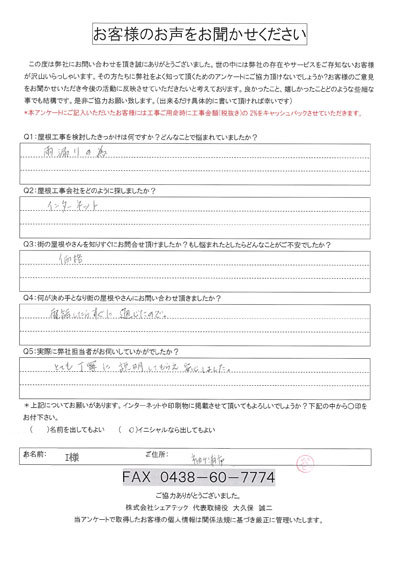 お客様のお声をお聞かせください
この度は弊社にお問い合わせを頂き誠にありがとうございました。世の中には弊社の存在やサービスをご存知ないお客様
が沢山いらっしゃいます。その方たちに弊社をよく知って頂くためのアンケートにご協力頂けないでしょうか?お客様のご意見
をお聞かせいただき今後の活動に反映させていただきたいと考えております。良かったこと、嬉しかったことどのような些細な
事でも結構です。是非ご協力お願い致します。(出来るだけ具体的に書いて頂ければ幸いです)
*本アンケートにご記入いただいたお客様には工事ご用途時に工事金額(税抜き)の 2%をキャッシュバックさせていただきます。
Q1:屋根工事を検討したきっかけは何ですか?どんなことで悩まれていましたか?
雨漏りの為
Q2:屋根工事会社をどのように探しましたか?
インターネット
Q3:街の屋根やさんを知りすぐにお問合せ頂けましたか?もし悩まれたとしたらどんなことがご不安でしたか?
価格
Q4:何が決め手となり街の屋根やさんにお問い合わせ頂きましたか?
電話したらすぐに通じたので。
Q5:実際に弊社担当者がお伺いしていかがでしたか?
とても丁寧に説明してもらえ安心しました。
*上記についてお願いがあります。インターネットや印刷物に掲載させて頂いてもよろしいでしょうか?下記の中から〇印を
お付下さい。
( )名前を出してもよい ( 〇 )イニシャルなら出してもよい
お名前: I様 ご住所:
FAX 0438-60-7774
ご協力ありがとうございました。
株式会社シェアテック 代表取締役 大久保 誠二
当アンケートで取得したお客様の個人情報は関係法規に基づき厳正に管理いたします。